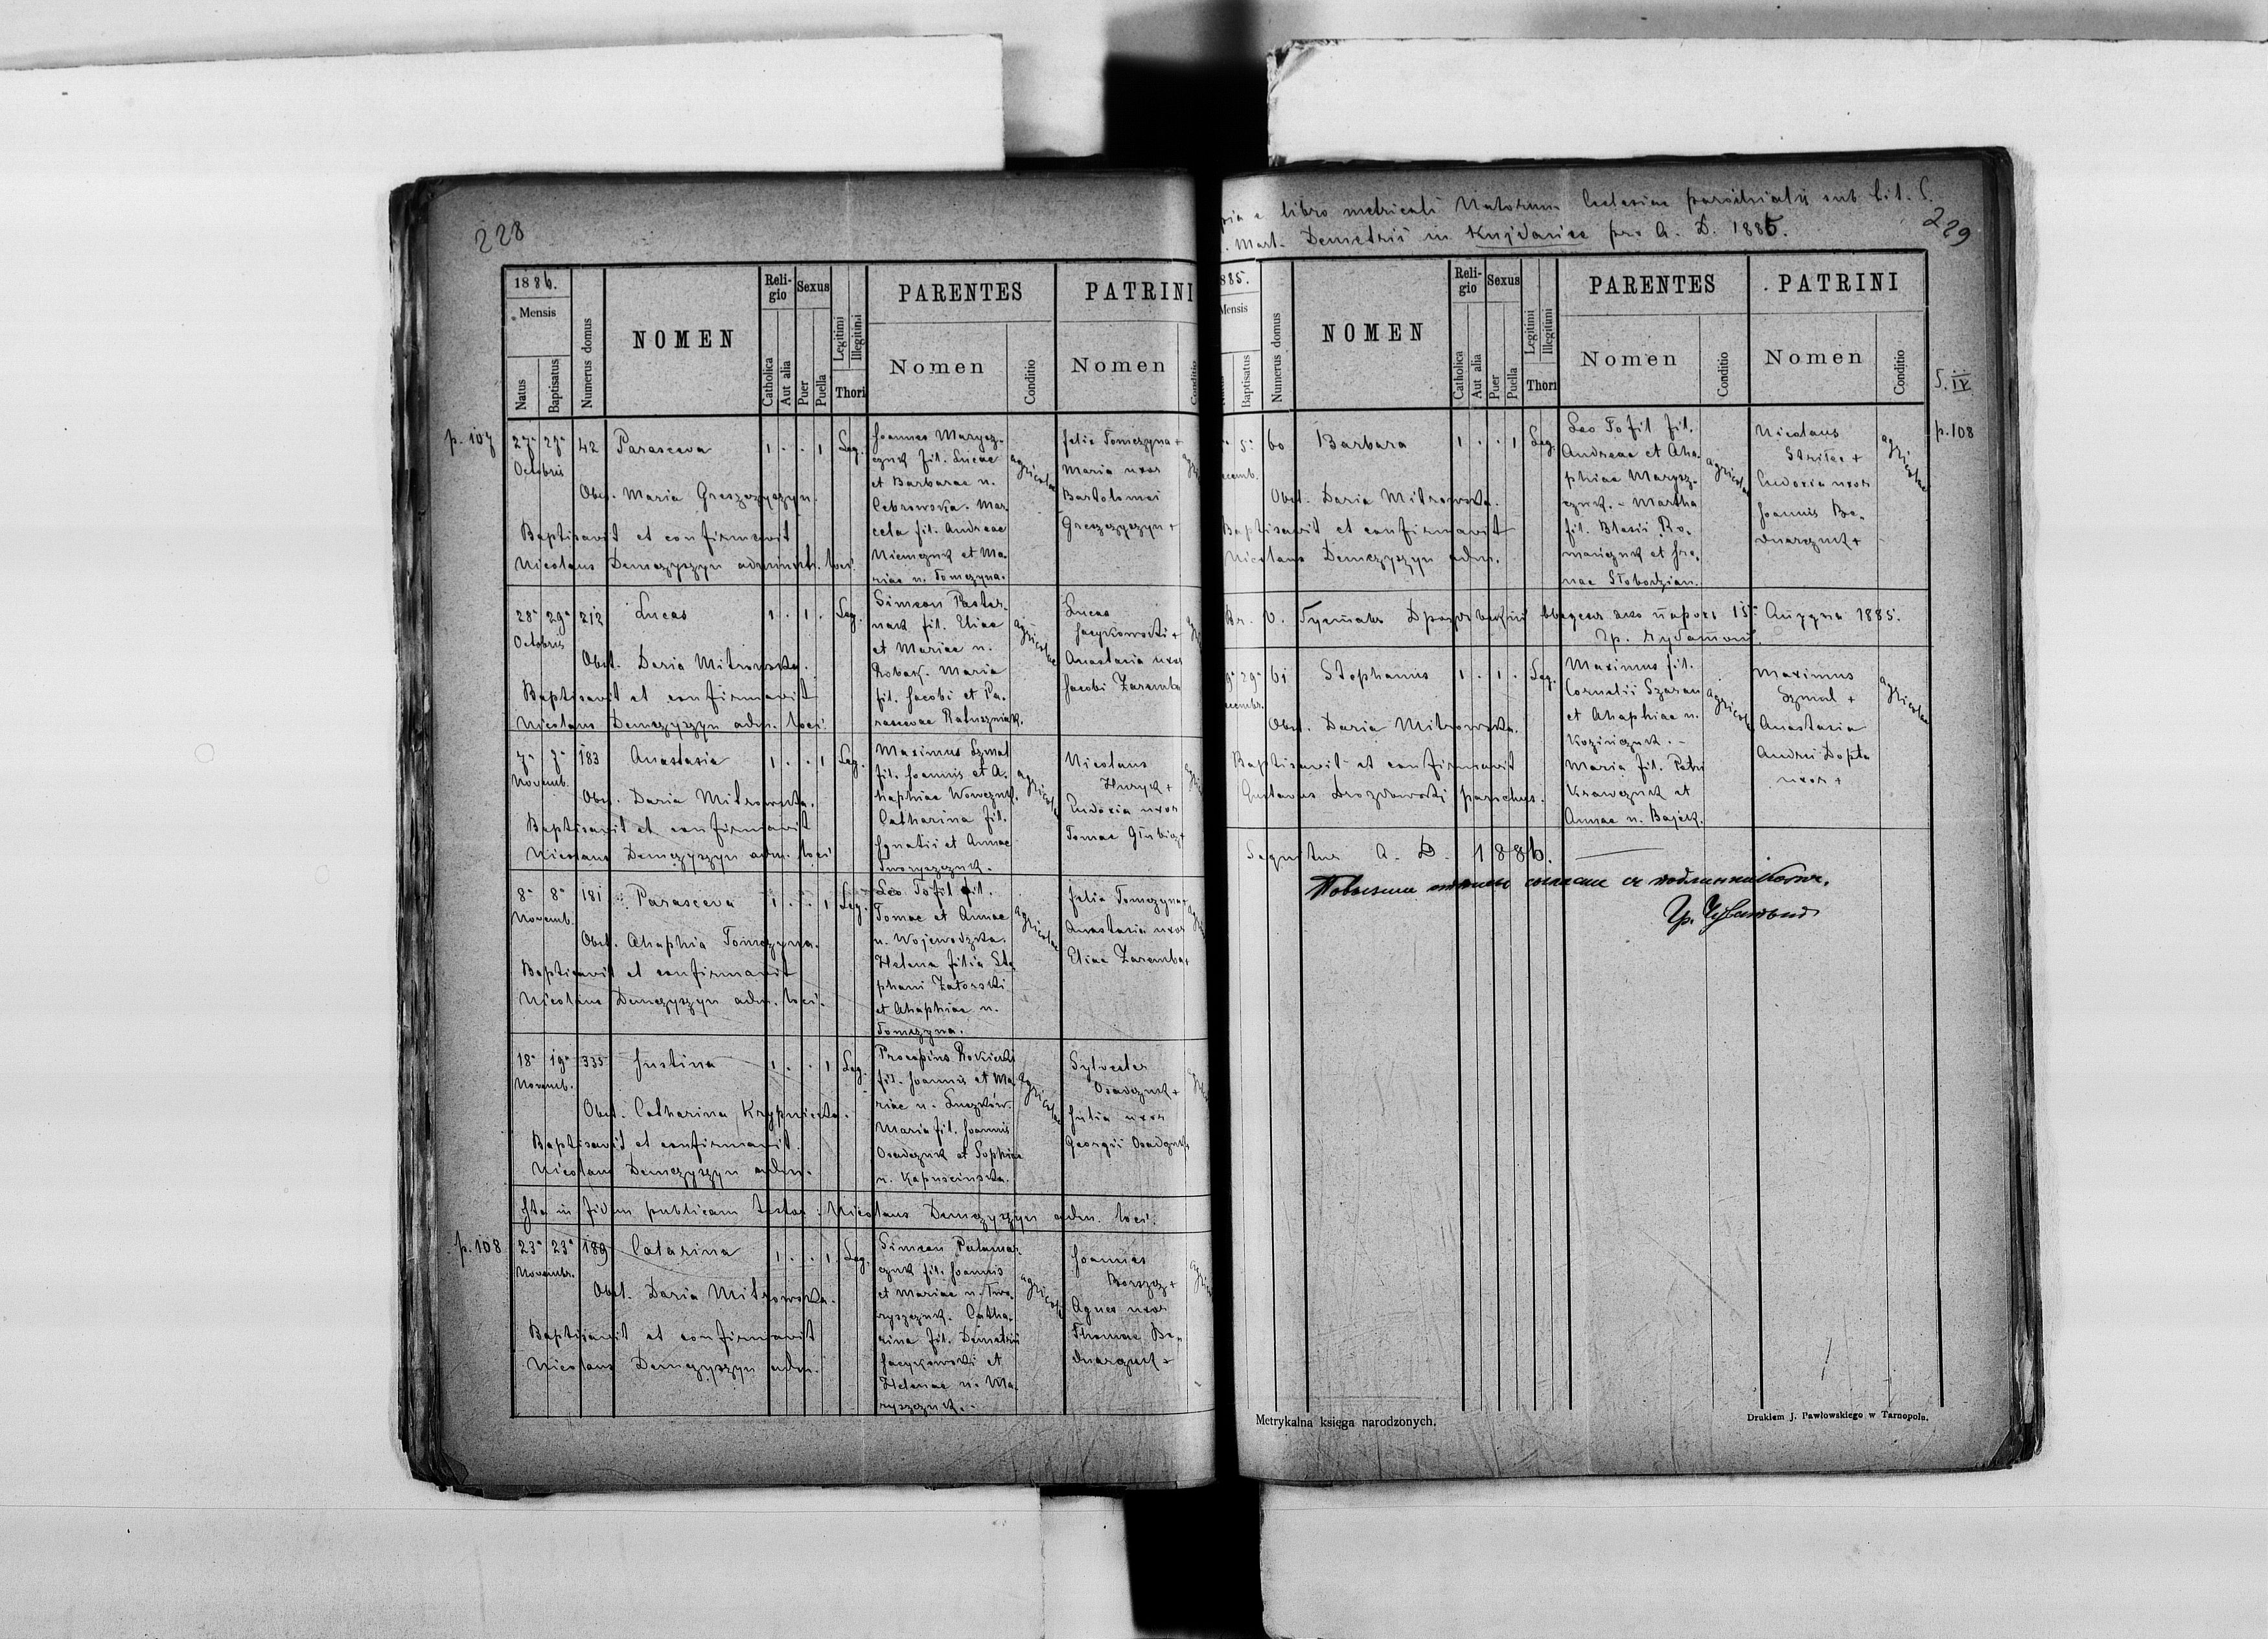 228
1886.
Mensis
Natus
Baptisatus
Numerus domus
NOMEN
Religio
Catholica
Aut alia
Sexus
Puer
Puella
Legitimi
Illegitimi
Thori
PARENTES
Nomen
Conditio
PATRINI
Nomen
Conditio
p. 107
27a 27a 42 Parasceva 1 . . 1 Leg.
Octobris
Obst. Maria Greszczyszyn.
Baptisavit et confirmavit
Nicolaus Demczyszyn administr. loci.
Joannes Marysz-
czuk fil. Lucae
et Barbarae n.
Cebrowska. Mar-
cela fil. Andreae
Niemczuk et Ma-
riae n. Tomczyna.
agricolae
Felix Tomczyna +
Maria uxor
Bartolomei
Greszczyszyn +
28a 29a 212 Lucas 1 . 1 . Leg.
Octobris
Obst. Daria Mitrowska.
Baptisavit et confirmavit
Nicolaus Demczyszyn adm. loci.
Simeon Paster-
nak fil. Eliae
et Mariae n.
Robak. Maria
fil. Jacobi et Pa-
rascevae Ratuszniak.
agricolae
Lucas
Jacykowski +
Anastasia uxor
Jacobi Zaremba
7a 7a 183 Anastasia 1 . . 1 Leg.
Novemb.
Obst. Daria Mitrowska.
Baptisavit et confirmavit
Nicolaus Demczyszyn adm. loci
Maximus Szmal
fil. Joannis et A-
haphiae Wowczuk.
Catharina fil.
Ignatii et Annae
Tworyszczuk.
agricolae
Nicolaus
Huryk +
Eudoxia uxor
Tomae Glubicz +
8a 8a 181 Parasceva 1 . . 1 Leg.
Novemb.
Obst. Ahaphia Tomczyna.
Baptisavit et confirmavit
Nicolaus Demczyszyn adm. loci.
Leo Tofil fil.
Tomae et Annae
n. Wojewodzka.
Helena filia Ste-
phani Zatorski
et Ahaphiae n.
Tomczyna.
agricolae
Felix Tomczyna +
Anastasia uxor
Eliae Zaremba +
18a 19a 335 Justina 1 . . 1 Leg.
Novemb.
Obst. Catharina Krypnicka.
Baptisavit et confirmavit.
Nicolaus Demczyszyn adm.
Procopius Rokicki
fil. Joannis et Ma-
riae n. Luczków.
Maria fil. Joannis
Osadczuk et Sophiae
n. Kapuścinska.
agricolae
Sylvester
Osadczuk +
Julia uxor
Georgii Osadczuk +
Ita in fidem publicam testor: Nicolaus Demczyszyn adm. loci.
p. 108
23a 23a 189 Catarina 1 . . 1 Leg.
Novembr.
Obst. Daria Mitrowska.
Baptisavit et confirmavit
Nicolaus Demczyszyn adm.
Simeon Palamar-
czuk fil. Joannis
et Mariae n. Two-
ryszczuk. Catha-
rina fil. Demetrii
Jacykowski et
Helenae n. Ma-
ryszczuk.
agricolae
Joannes
Borszcz +
Agnes uxor
Thomae Be-
dnarczuk +
pia e libro metricali Natorum Ecclesiae parochialis sub tit. S.
Mart. Demetrii in Kujdańce pro A. D. 1885.
229
885.
Mensis
Baptisatus
Numerus domus
NOMEN
Religio
Catholica
Aut alia
Sexus
Puer
Puella
Legitimi
Illegitimi
Thori
PARENTES
Nomen
Conditio
PATRINI
Nomen
Conditio
p. 108
5a 60 Barbara 1 . . 1 Leg.
ecemb.
Obst. Daria Mitrowska.
Baptisavit et confirmavit
Nicolaus Demczyszyn adm.
Leo Tofil fil.
Andreae et Aha-
phiae Marysz-
czuk. - Martha
fil. Blasii Ro-
mańczuk et Ire-
nae Słobodzian.
agricolae
Nicolaus
Strilec +
Eudoxia uxor
Joannis Be-
dnarczuk +
agricolae
Густавъ Дроздовскій введенъ яко парохъ 15 Августа 1885.
29a 61 Stephanus 1 . 1 . Leg.
ecembr.
Obst. Daria Mitrowska.
Baptisavit et confirmavit
Gustavus Drozdowski parochus.
Maximus fil.
Cornelii Szaran
et Ahaphiae n.
Kozińczuk. -
Maria fil. Petri
Krawczuk et
Annae n. Bajck.
agricolae
Maximus
Szmal +
Anastasia
Andrii Dopta
uxor +
agricolae
Sequitur A. D. 1886.
Metrykalna księga narodzonych.
Drukiem J. Pawłowskiego w Tarnopolu.